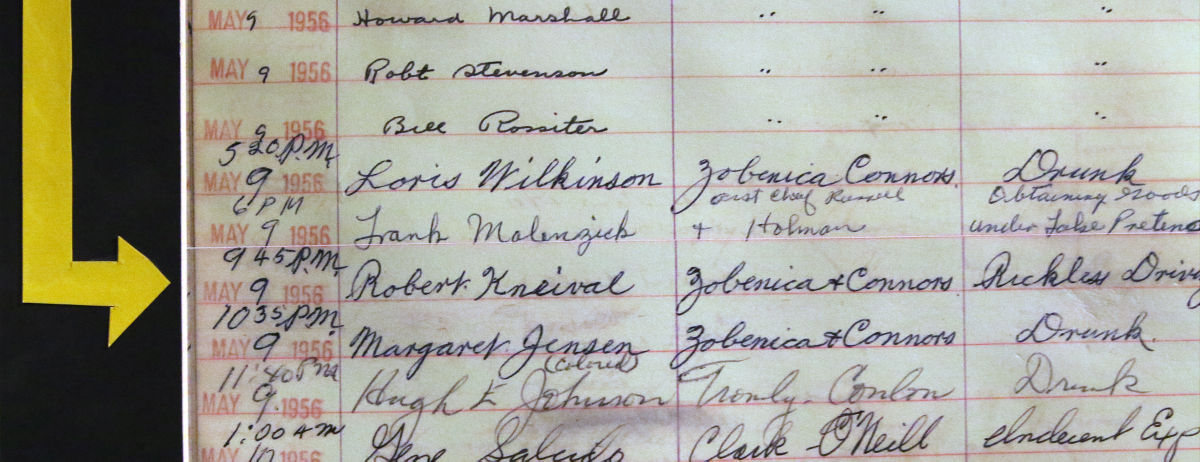 MAY 9 1956 Howard Marshall " " "
MAY 9 1956 Robt Stevenson " " "
MAY 9 1956 Bill Rossiter " " "
5 20 P.M.
MAY 9 1956 Loris Wilkinson Zobenica Connors. Drunk
6 PM asst Chief Russell Obtaining Goods
MAY 9 1956 Frank Malenzick + Holman under False Pretens
9 45 P.M.
MAY 9 1956 Robert Kneival Zobenica + Connors Rickless Driv
10 35 P.M.
MAY 9 1956 Margaret Jensen Zobenica + Connors Drunk.
11:40 PM (Colored)
MAY 9. 1956 Hugh E Johnson Conlon Drunk
1:00 AM
MAY 10 1956 Gene Clark O'Neill Indecent Exp